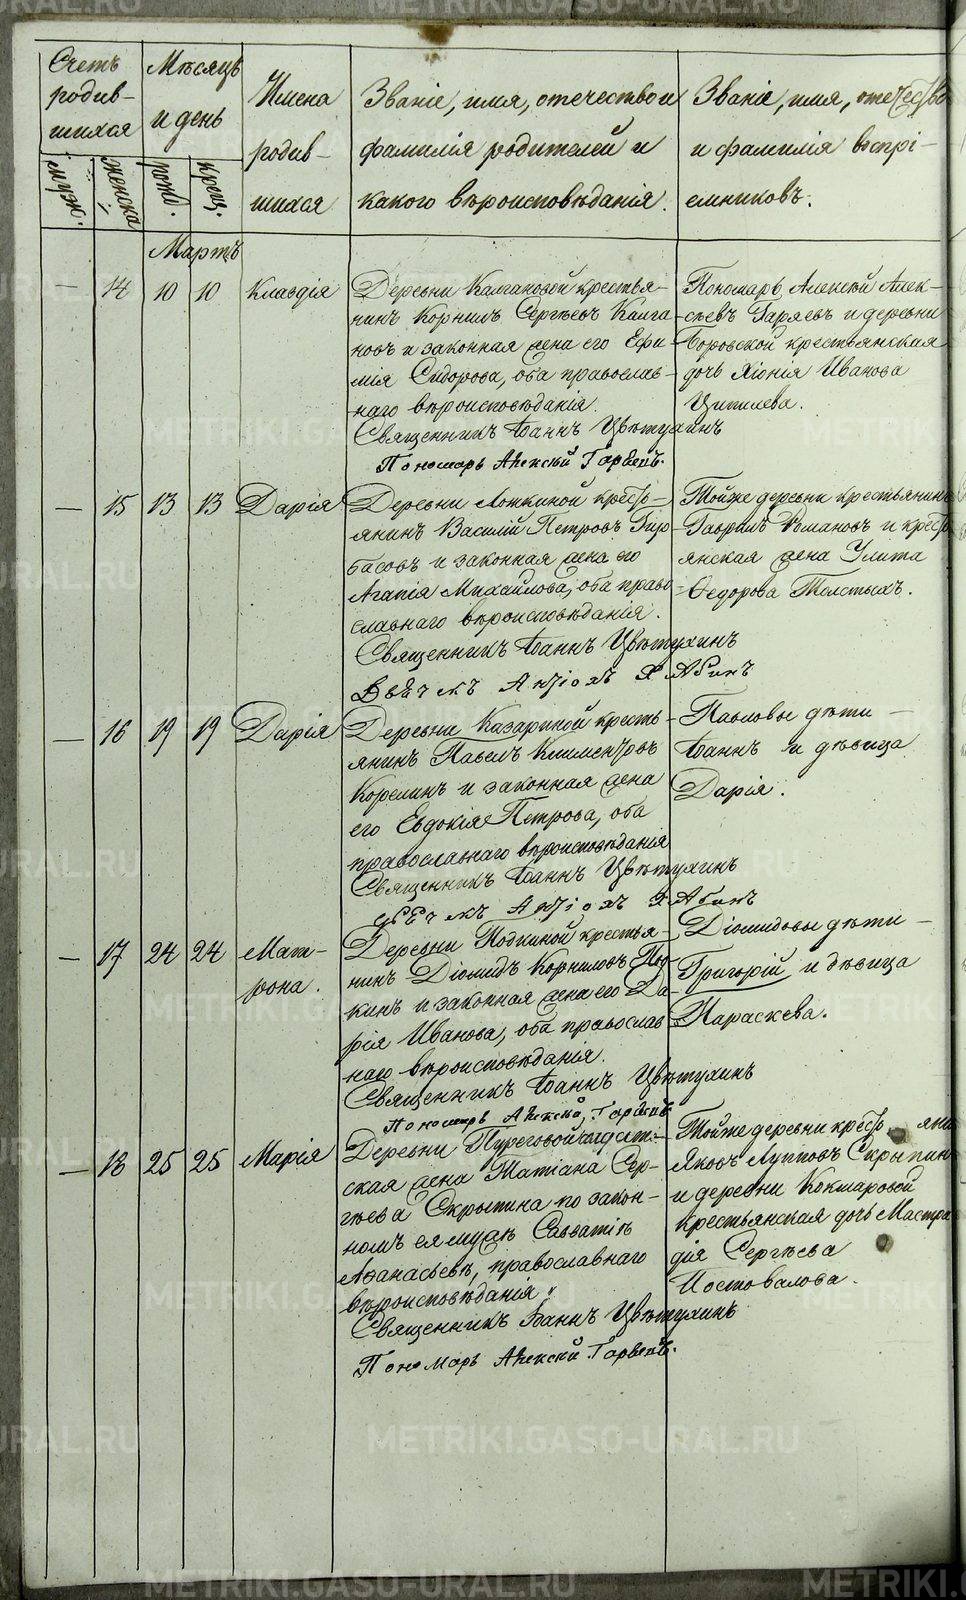 Счетъ родив-шихся
Мѣсяцъ и день
Имена родив-шихся
Званіе, имя, отечество и фамилія родителей и какого вѣроисповѣданія.
Званіе, имя, отечество и фамилія воспрі-емниковъ.
мужск.
женска
рожд.
крещ.
Мартъ
— 14 10 10 Клавдія
Деревни Калгановой крестья-
нинъ Корнилъ Сергѣевъ Калга-
новъ и законная жена его Ефи-
мія Сидорова, оба православ-
наго вѣроисповѣданія.
Священникъ Іоаннъ Цвѣтухинъ
Пономарь Алексѣй Гаряевъ.
Пономарь Алексѣй Алек-
сѣевъ Гаряевъ и деревни
Боровской крестьянская
дочь Хіонія Иванова
Ципилева.
— 15 13 13 Дарія
Деревни Ложкиной кресть-
янинъ Василій Петровъ Гир-
басовъ и законная жена его
Агапія Михайлова, оба право-
славнаго вѣроисповѣданія.
Священникъ Іоаннъ Цвѣтухинъ
Дьячекъ Антіохъ
Тойже деревни крестьянинъ
Гавріилъ Романовъ и кресть
янская жена Улита
Ѳедорова Толстыхъ.
— 16 19 19 Дарія
Деревни Казариной кресть-
янинъ Павелъ Климентовъ
Корелинъ и законная жена
его Евдокія Петрова, оба
православнаго вѣроисповѣданія
Священникъ Іоаннъ Цвѣтухинъ
Дьячекъ Антіохъ
Павловы дѣти —
Іоаннъ и дѣвица
Дарія.
— 17 24 24 Мат-
рона.
Деревни Подкиной крестья-
нинъ Діомидъ Корниловъ Под-
кинъ и законная жена его Да-
рія Иванова, оба православ
наго вѣроисповѣданія.
Священникъ Іоаннъ Цвѣтухинъ
Пономарь Алексѣй Гаряевъ
Діомидовы дѣти —
Григорій и дѣвица
Параскева.
— 18 25 25 Марія
Деревни
ская жена Татіана Сер-
гѣева Скрыпина по закон-
номъ ея мужѣ Савватіѣ
Аѳанасьевѣ, православнаго
вѣроисповѣданія
Священникъ Іоаннъ Цвѣтухинъ
Пономарь Алексѣй Гаряевъ.
Тойже деревни крест янин
Яковъ Лупповъ Скрыпин
и деревни Кокшаровой
крестьянская дочь Мастри
дія Сергѣева
Постовалова.
METRIKI.GASO-URAL.RU